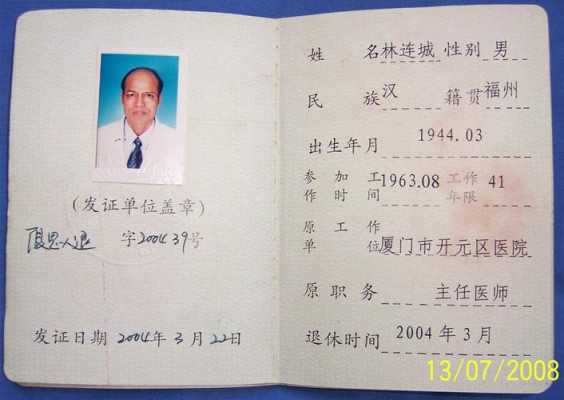 (发证单位盖章)
字2004 39号
发证日期 2004年3月22日
姓 名 林连城 性别 男
民 族 汉 籍贯 福州
出生年月 1944.03
参加工作时间 1963.08 工作年限 41
原工作单位 厦门市开元区医院
原职务 主任医师
退休时间 2004年3月
13/07/2008